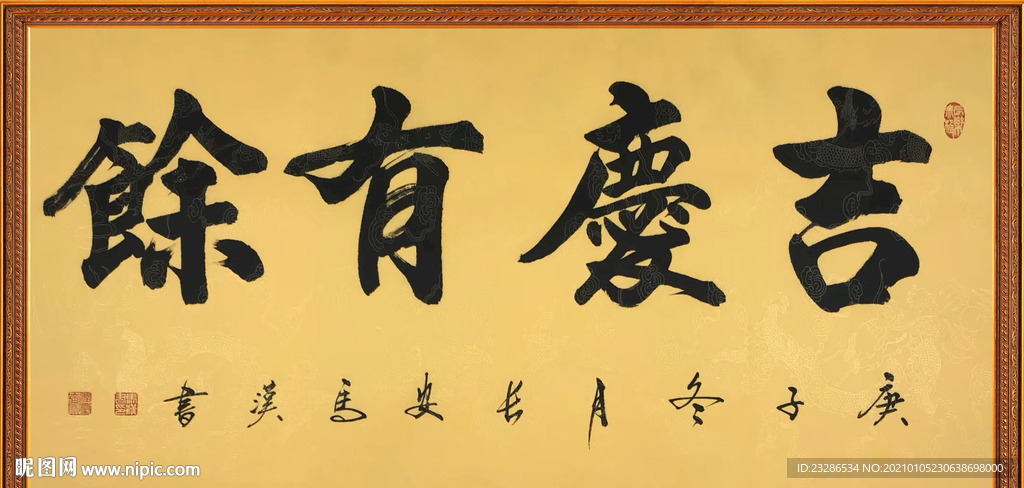 吉慶有餘
庚子冬月長安馬漢書
昵图网 www.nipic.com
ID:23286534 NO:20210105230638698000